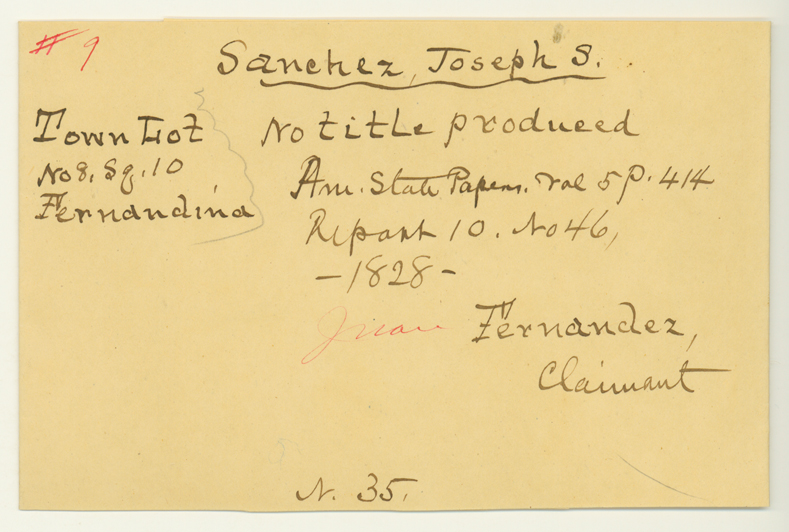 # 9
Sanchez, Joseph S.
Town Lot
No 8. Sq. 10
Fernandina
No title produced
Am. State Papers. Vol 5 P. 414
Report 10. No 46,
- 1828 -
Juan Fernandez,
Claimant
N. 35.